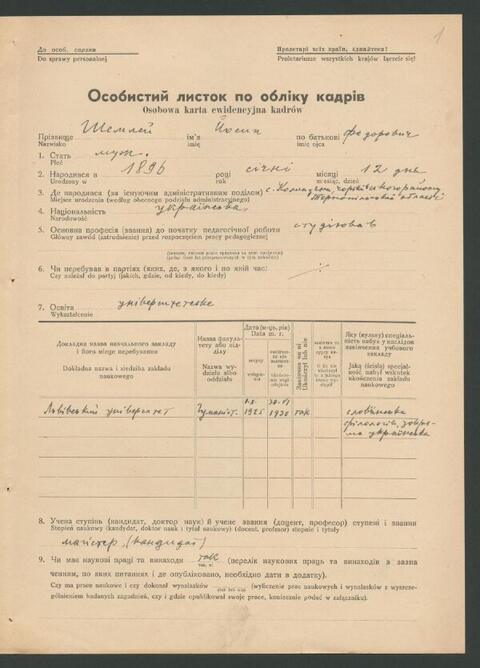 1
До особ. справи
Do sprawy personalnej
Пролетарі всіх країн, єднайтеся!
Proletariusze wszystkich krajów łączcie się!
Особистий листок по обліку кадрів
Osobowa karta ewidencyjna kadrów
Прізвище Шемлей ім'я Йосип по батькові Федорович
Nazwisko imię imię ojca
1. Стать муж.
Płeć
2. Народився в 1896 році січні місяці 12 дня
Urodzony w roku miesiąc, dzień
3. Де народився (за існуючим адміністративним поділом) с.
Miejsce urodzenia (według obecnego podziału administracyjnego) Тернопільської області
4. Національність українська
Narodowość
5. Основна професія (звання) до початку педагогічної роботи студіював
Główny zawód (zatrudnienie) przed rozpoczęciem pracy pedagogicznej
6. Чи перебував в партіях (яких, де, з якого і по якій час)
Czy należał do partyj (jakich, gdzie, od kiedy, do kiedy)
7. Освіта університетське
Wykształcenie
Докладна назва навчального закладу і його місце перебування
Dokładna nazwa i siedziba zakładu naukowego
Назва факультету або відділу
Nazwa wydziału albo oddziału
Дата (м-ць, рік)
Data m. r.
вступу
Закінчив чи ні
Ukończył lub nie
Яку (вузьку) спеціальність набув у наслідок закінчення учбового закладу
Jaką (ścisłą) specjalność nabył wskutek ukończenia zakładu naukowego
Львівський університет Гуманіст. 1925 1930 так слов'янська
філологія, зокрема українська
8. Учена ступінь (кандидат, доктор наук) й учене звання (доцент, професор) ступені і звання
Stopień naukowy (kandydat, doktor nauk i tytuł naukowy) (docent, profesor) stopnie i tytuły
магістер, (кандидат)
9. Чи має наукові праці та винаходи так (перелік наукових праць та винаходів з зазначенням, по яких питаннях і де опубліковано, необхідно дати в додатку).
Czy ma prace naukowe i czy dokonał wynalazków (wyliczenie prac naukowych i wynalazków z wyszczególnieniem badanych zagadnień, czy i gdzie opublikował swoje prace, koniecznie podać w załączniku).